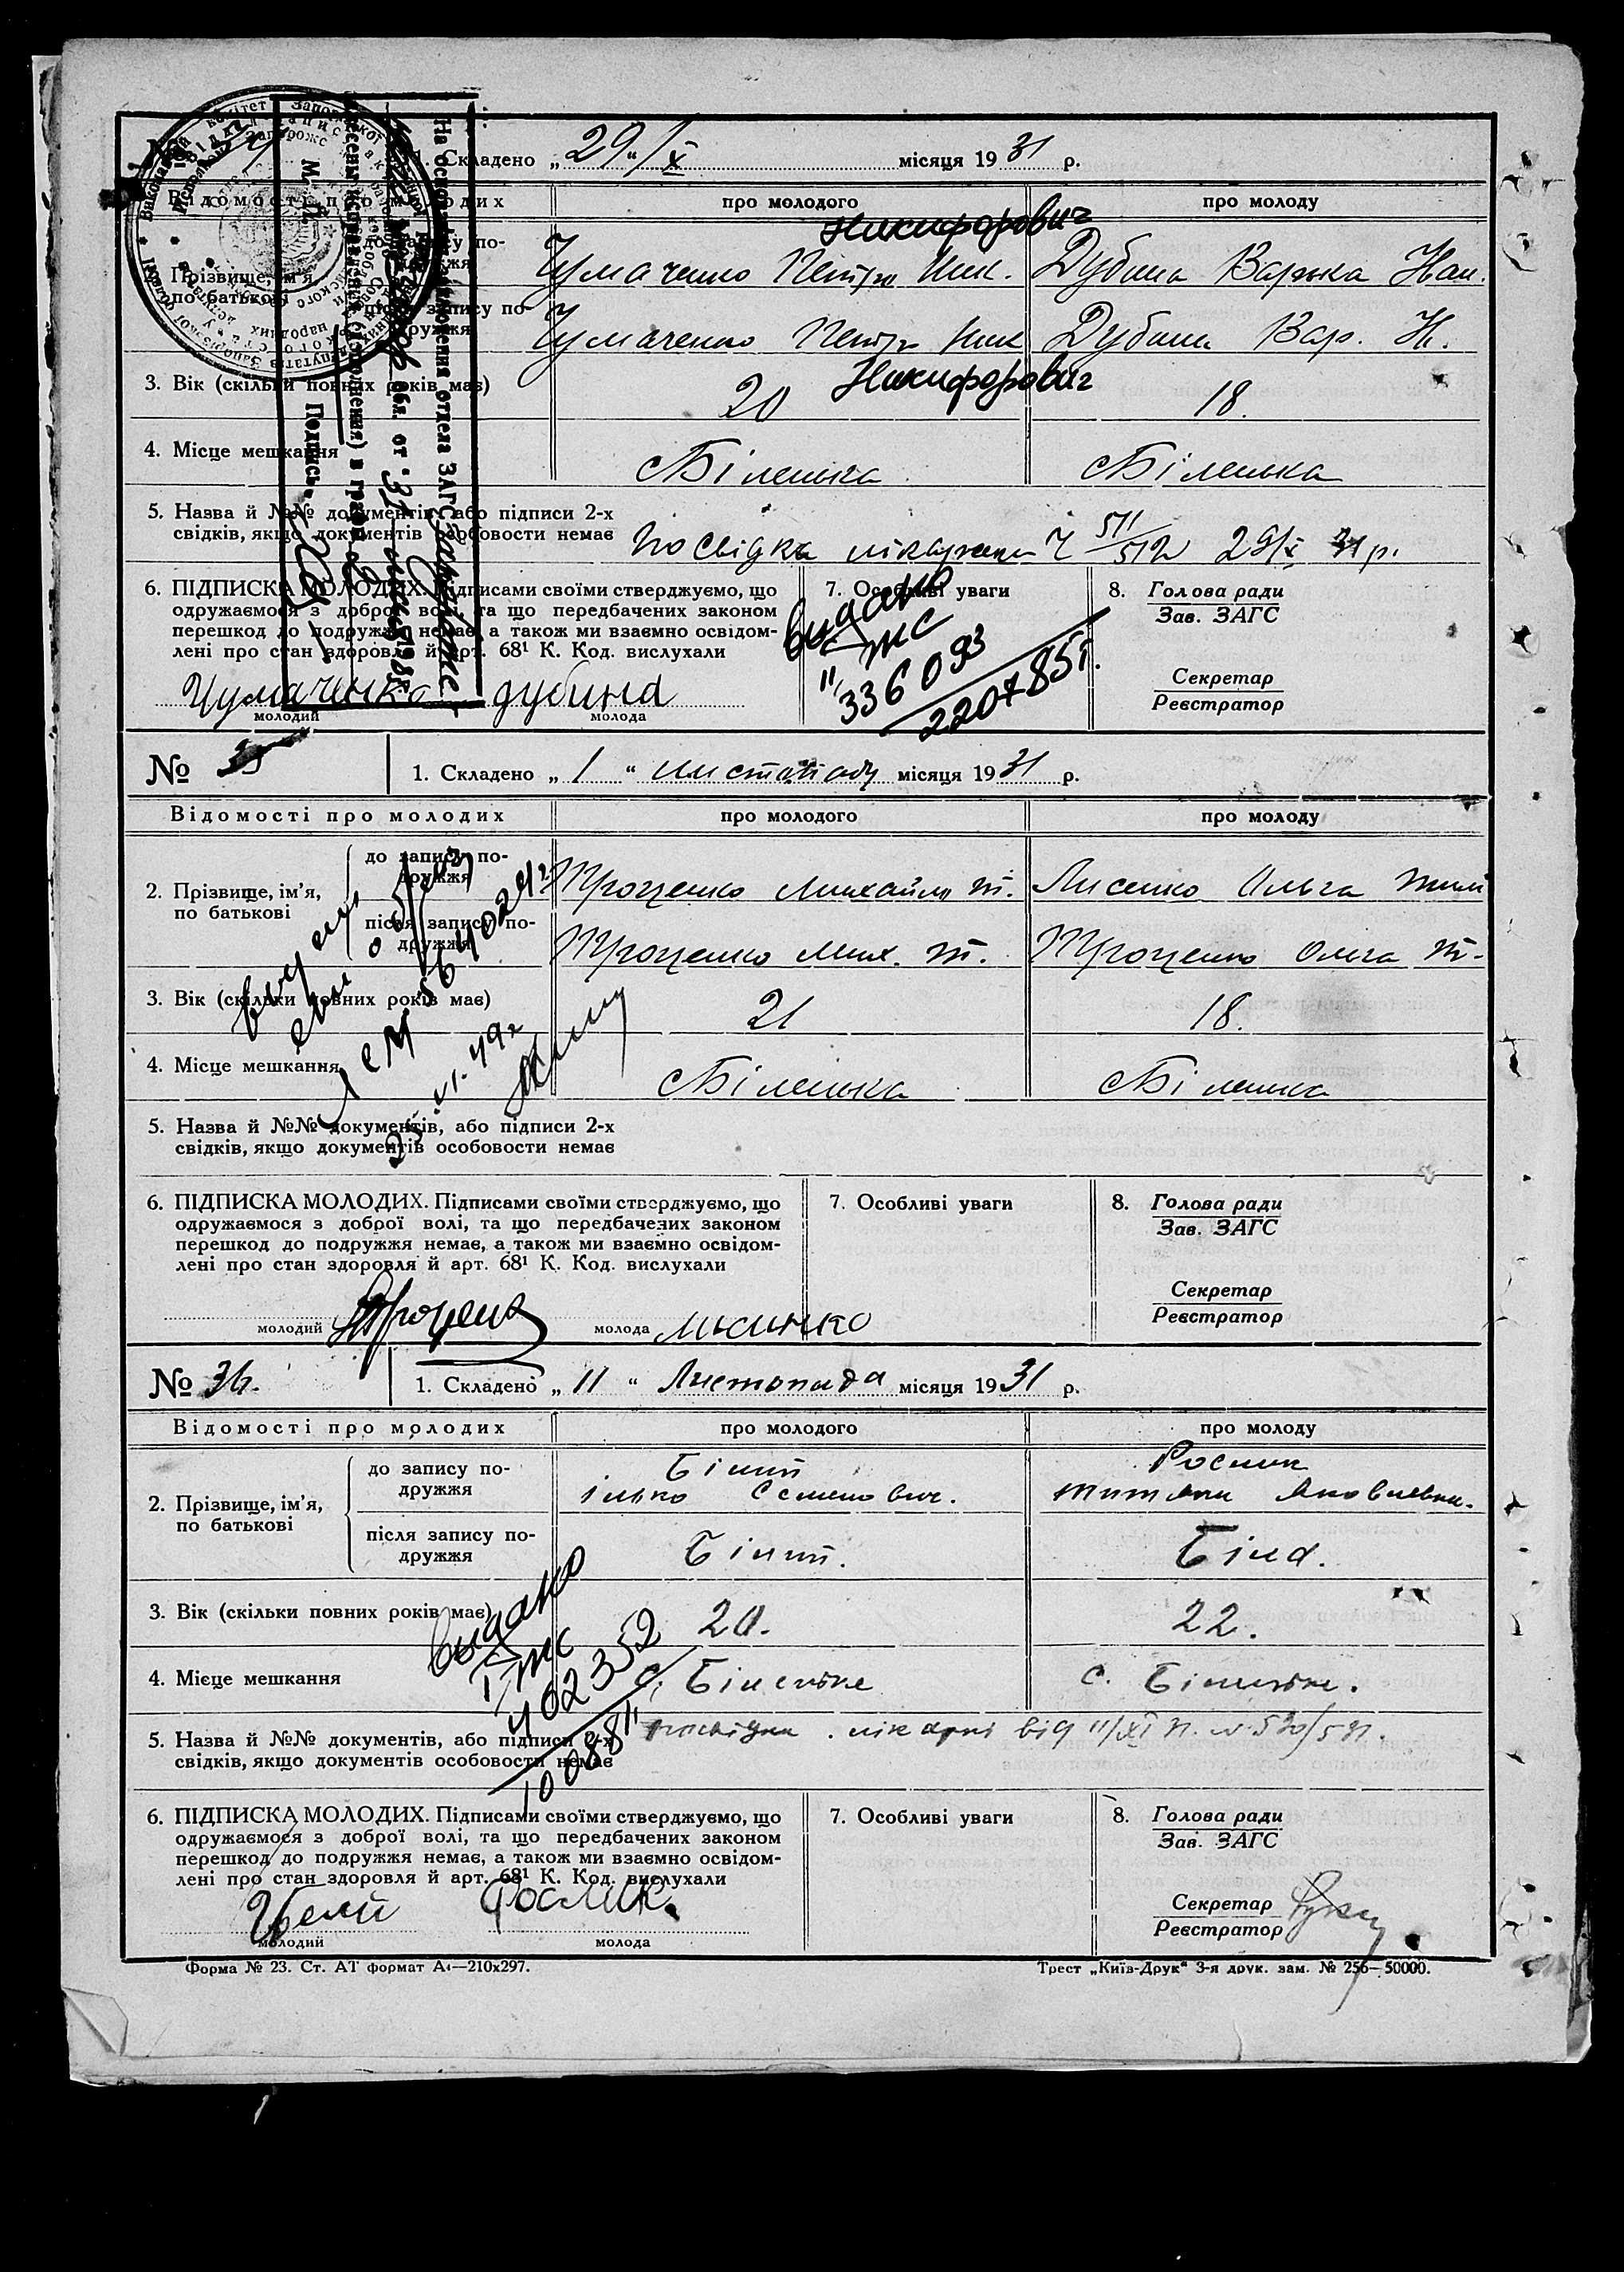 1. Складено „ 29 “ / X місяця 19 31 р.
Відомості про молодих про молодого про молоду
Никифорович
2. Прізвище, ім'я, по батькові
до запису подружжя Чумаченко Петро Ник. Дубина Варька
після запису подружжя Чумаченко Петро Ник Дубина Вар. Н.
Никифорович
3. Вік (скільки повних років має) 20 18.
4. Місце мешкання Біленька Біленька
5. Назва й №№ документів, або підписи 2-х
свідків, якщо документів особовости немає Посвідка лікарні Ч 511/512 29/X 31 р.
6. ПІДПИСКА МОЛОДИХ. Підписами своїми стверджуємо, що
одружаємося з доброї волі, та що передбачених законом
перешкод до подружжя немає, а також ми взаємно освідом-
лені про стан здоровля й арт. 68¹ К. Код. вислухали
Чумаченко дубина
молодий молода
7. Особливі уваги
видано
ЖС
336093
2207851.
8. Голова ради
Зав. ЗАГС
Секретар
Реєстратор
На основании заключения отдела ЗАГС
обл. от 31
внесены исправления (дополнения) в графы
М. П. Подпись
№ 35 1. Складено „ 1 “ листопаду місяця 19 31 р.
Відомості про молодих про молодого про молоду
2. Прізвище, ім'я,
по батькові
до запису по-
дружжя Троценко Михайло Т. Лисенко Ольга Тим
після запису по-
дружжя Троценко Мих. Т. Троценко Ольга Т.
3. Вік (скільки повних років має) 21 18.
4. Місце мешкання Біленька Біленька
25.VI.49 г
5. Назва й №№ документів, або підписи 2-х
свідків, якщо документів особовости немає
6. ПІДПИСКА МОЛОДИХ. Підписами своїми стверджуємо, що
одружаємося з доброї волі, та що передбачених законом
перешкод до подружжя немає, а також ми взаємно освідом-
лені про стан здоровля й арт. 68¹ К. Код. вислухали
молодий Троценко молода лисинко
7. Особливі уваги
8. Голова ради
Зав. ЗАГС
Секретар
Реєстратор
№ 36. 1. Складено „ 11 “ Листопада місяця 19 31 р.
Відомості про молодих про молодого про молоду
2. Прізвище, ім'я,
по батькові
до запису по-
дружжя Білий Рослик
Ілько Семенович. Яковлевна.
після запису по-
дружжя Білий. Біла.
3. Вік (скільки повних років має) 20. 22.
4. Місце мешкання с. Біленьке с. Біленьке.
видано
І ЖС
402352
100881
5. Назва й №№ документів, або підписи 2-х
свідків, якщо документів особовости немає посвідка лікарні від 11/XI
6. ПІДПИСКА МОЛОДИХ. Підписами своїми стверджуємо, що
одружаємося з доброї волі, та що передбачених законом
перешкод до подружжя немає, а також ми взаємно освідом-
лені про стан здоровля й арт. 68¹ К. Код. вислухали
Рослик.
молодий молода
7. Особливі уваги
8. Голова ради
Зав. ЗАГС
Секретар
Реєстратор
Форма № 23. Ст. АТ формат А4—210х297. Трест „Київ-Друк“ 3-я друк. зам. № 256—50000.